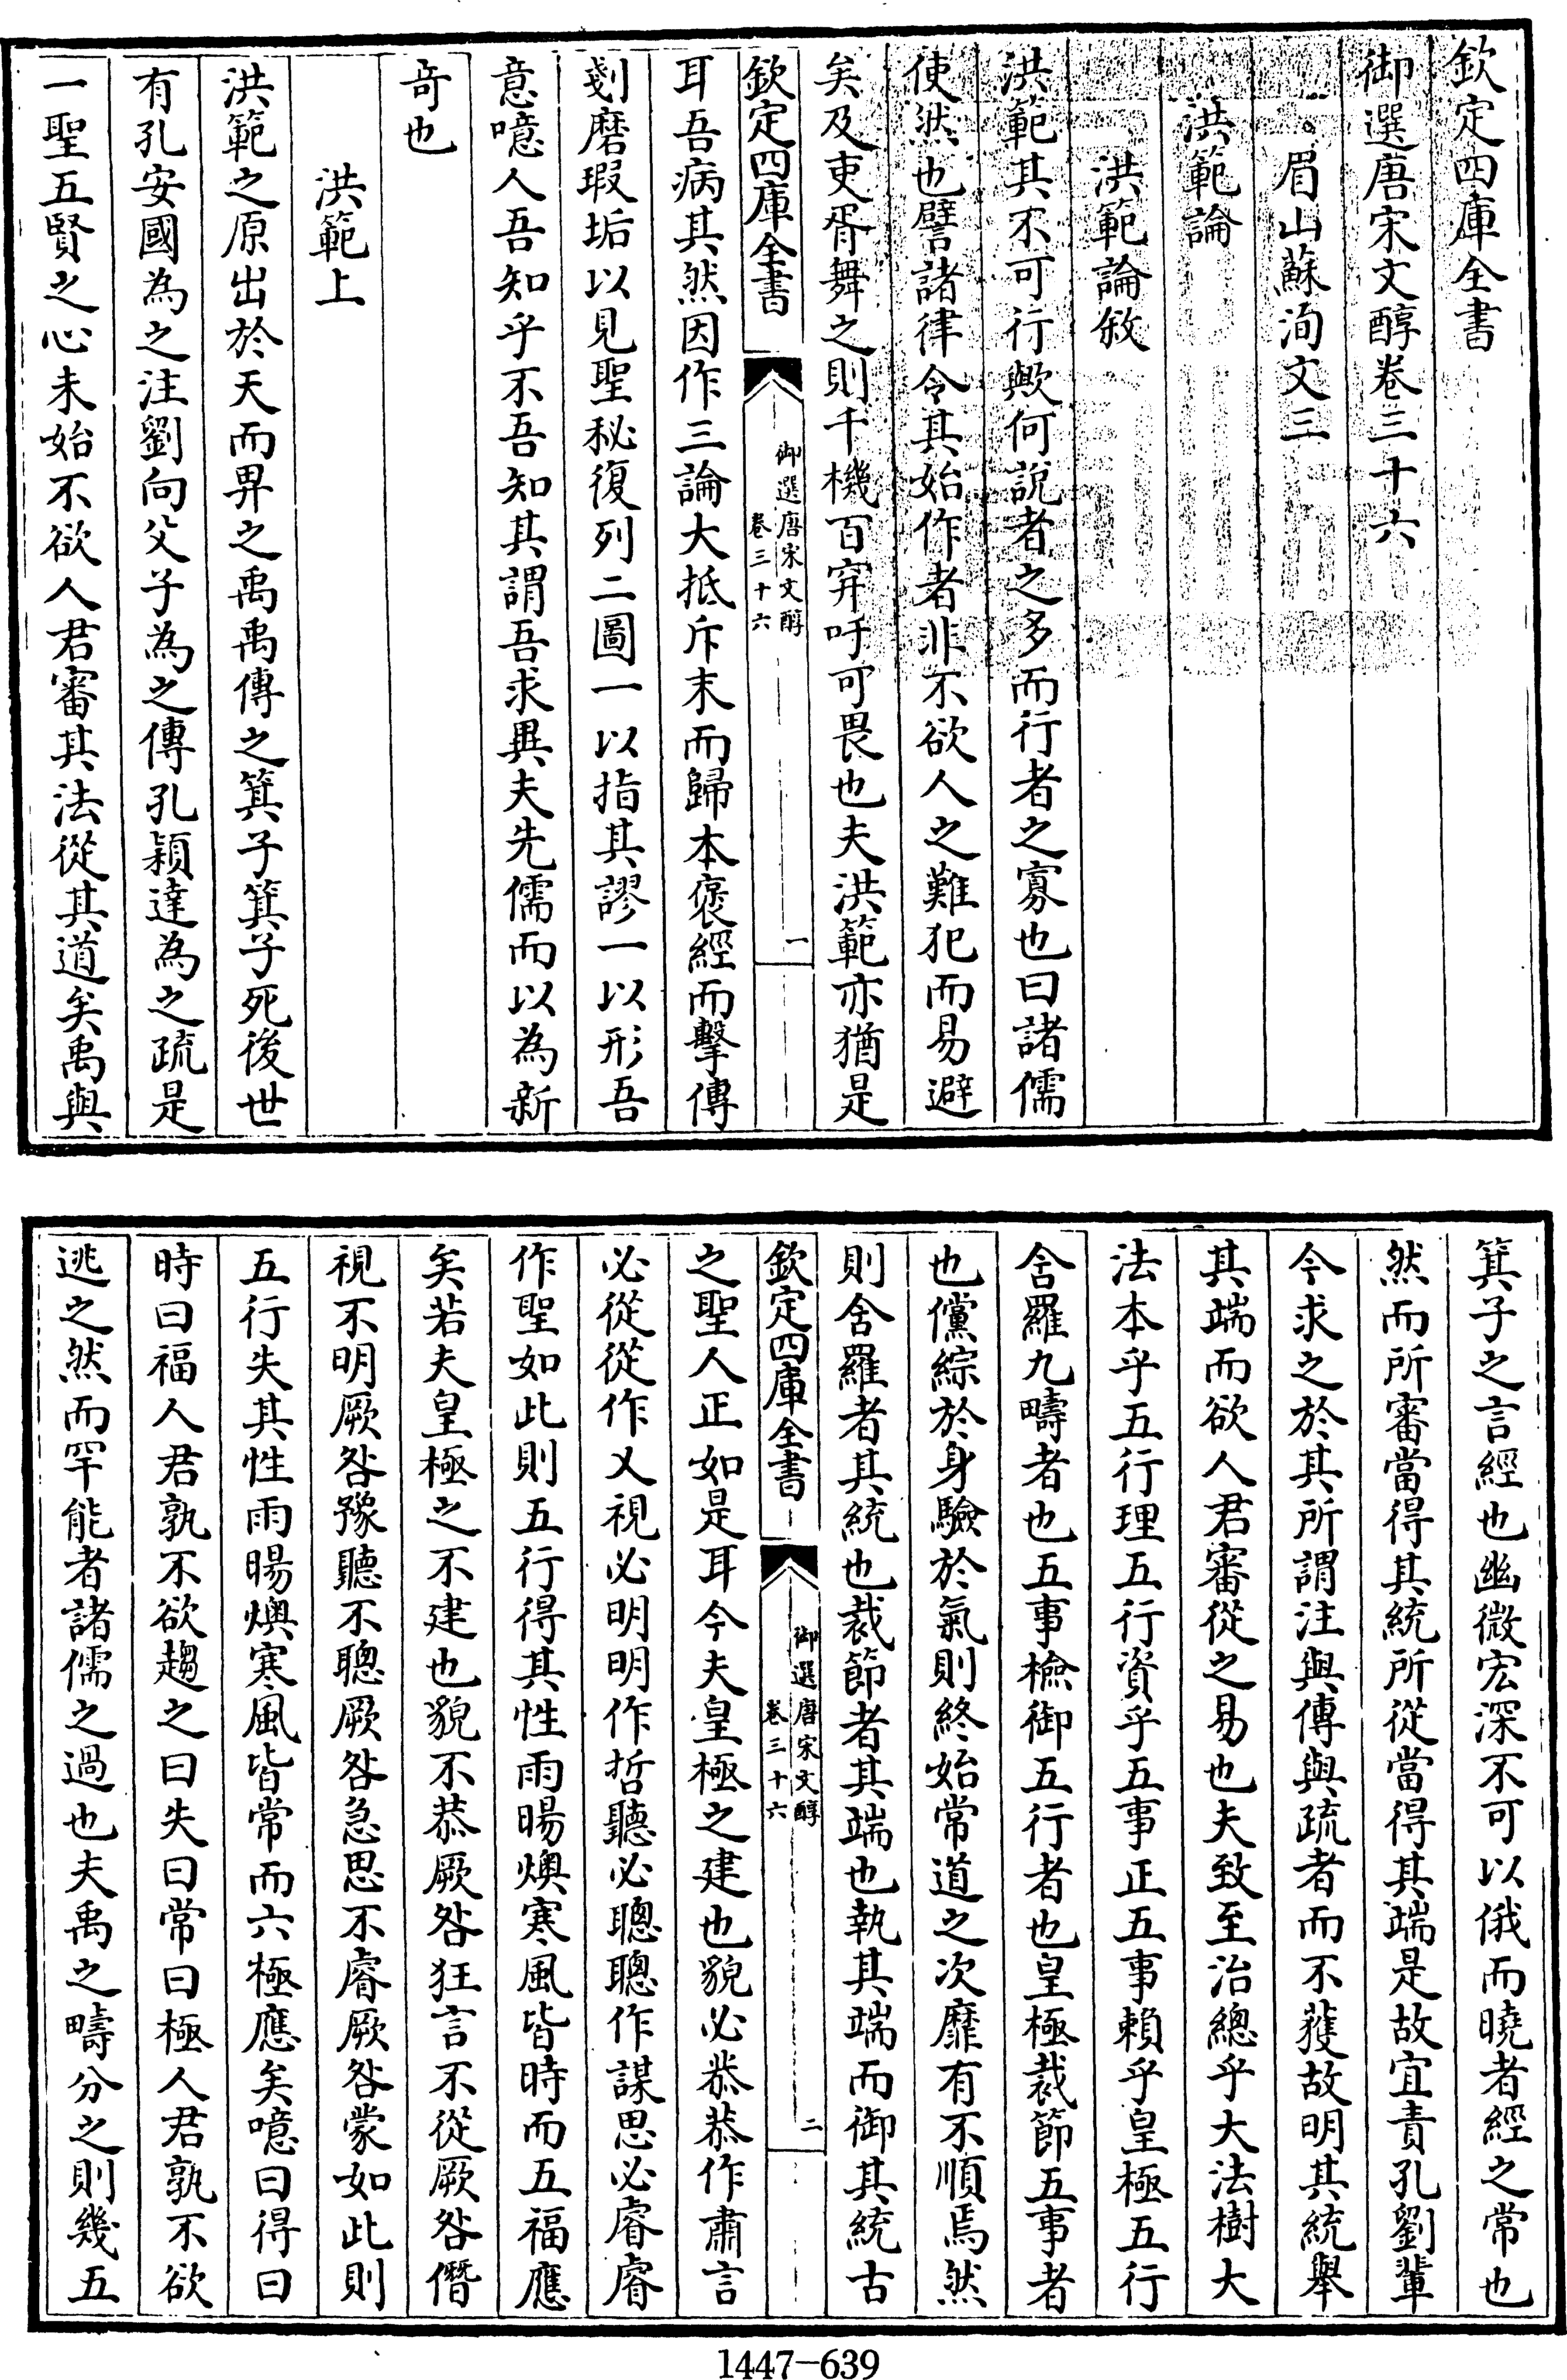 欽定四庫全書
御選唐宋文醇卷三十六
眉山蘇洵文三
洪範論
洪範論敘
洪範其不可行歟何說者之多而行者之寡也曰諸儒
使然也譬諸律令其始作者非不欲人之難犯而易避
矣及吏胥舞之則千機百穽吁可畏也夫洪範亦猶是
欽定四庫全書
御選唐宋文醇
卷三十六
一
耳吾病其然因作三論大抵斥末而歸本褒經而擊傳
剗磨瑕垢以見聖秘復列二圖一以指其謬一以形吾
意噫人吾知乎不吾知其謂吾求異夫先儒而以為新
奇也
洪範上
洪範之原出於天而畀之禹禹傳之箕子箕子死後世
有孔安國為之注劉向父子為之傳孔穎達為之疏是
一聖五賢之心未始不欲人君審其法從其道矣禹與
箕子之言經也幽微宏深不可以俄而曉者經之常也
然而所審當得其統所從當得其端是故宜責孔劉輩
今求之於其所謂注與傳與疏者而不獲故明其統舉
其端而欲人君審從之易也夫致至治總乎大法樹大
法本乎五行理五行資乎五事正五事賴乎皇極五行
含羅九疇者也五事檢御五行者也皇極裁節五事者
也儻綜於身驗於氣則終始常道之次靡有不順焉然
則含羅者其統也裁節者其端也執其端而御其統古
欽定四庫全書
御選唐宋文醇
卷三十六
二
之聖人正如是耳今夫皇極之建也貌必恭恭作肅言
必從從作乂視必明明作哲聽必聰聰作謀思必睿睿
作聖如此則五行得其性雨暘燠寒風皆時而五福應
矣若夫皇極之不建也貌不恭厥咎狂言不從厥咎僭
視不明厥咎豫聽不聰厥咎急思不睿厥咎蒙如此則
五行失其性雨暘燠寒風皆常而六極應矣噫曰得曰
時曰福人君孰不欲趨之曰失曰常曰極人君孰不欲
逃之然而罕能者諸儒之過也夫禹之疇分之則幾五
1447-639